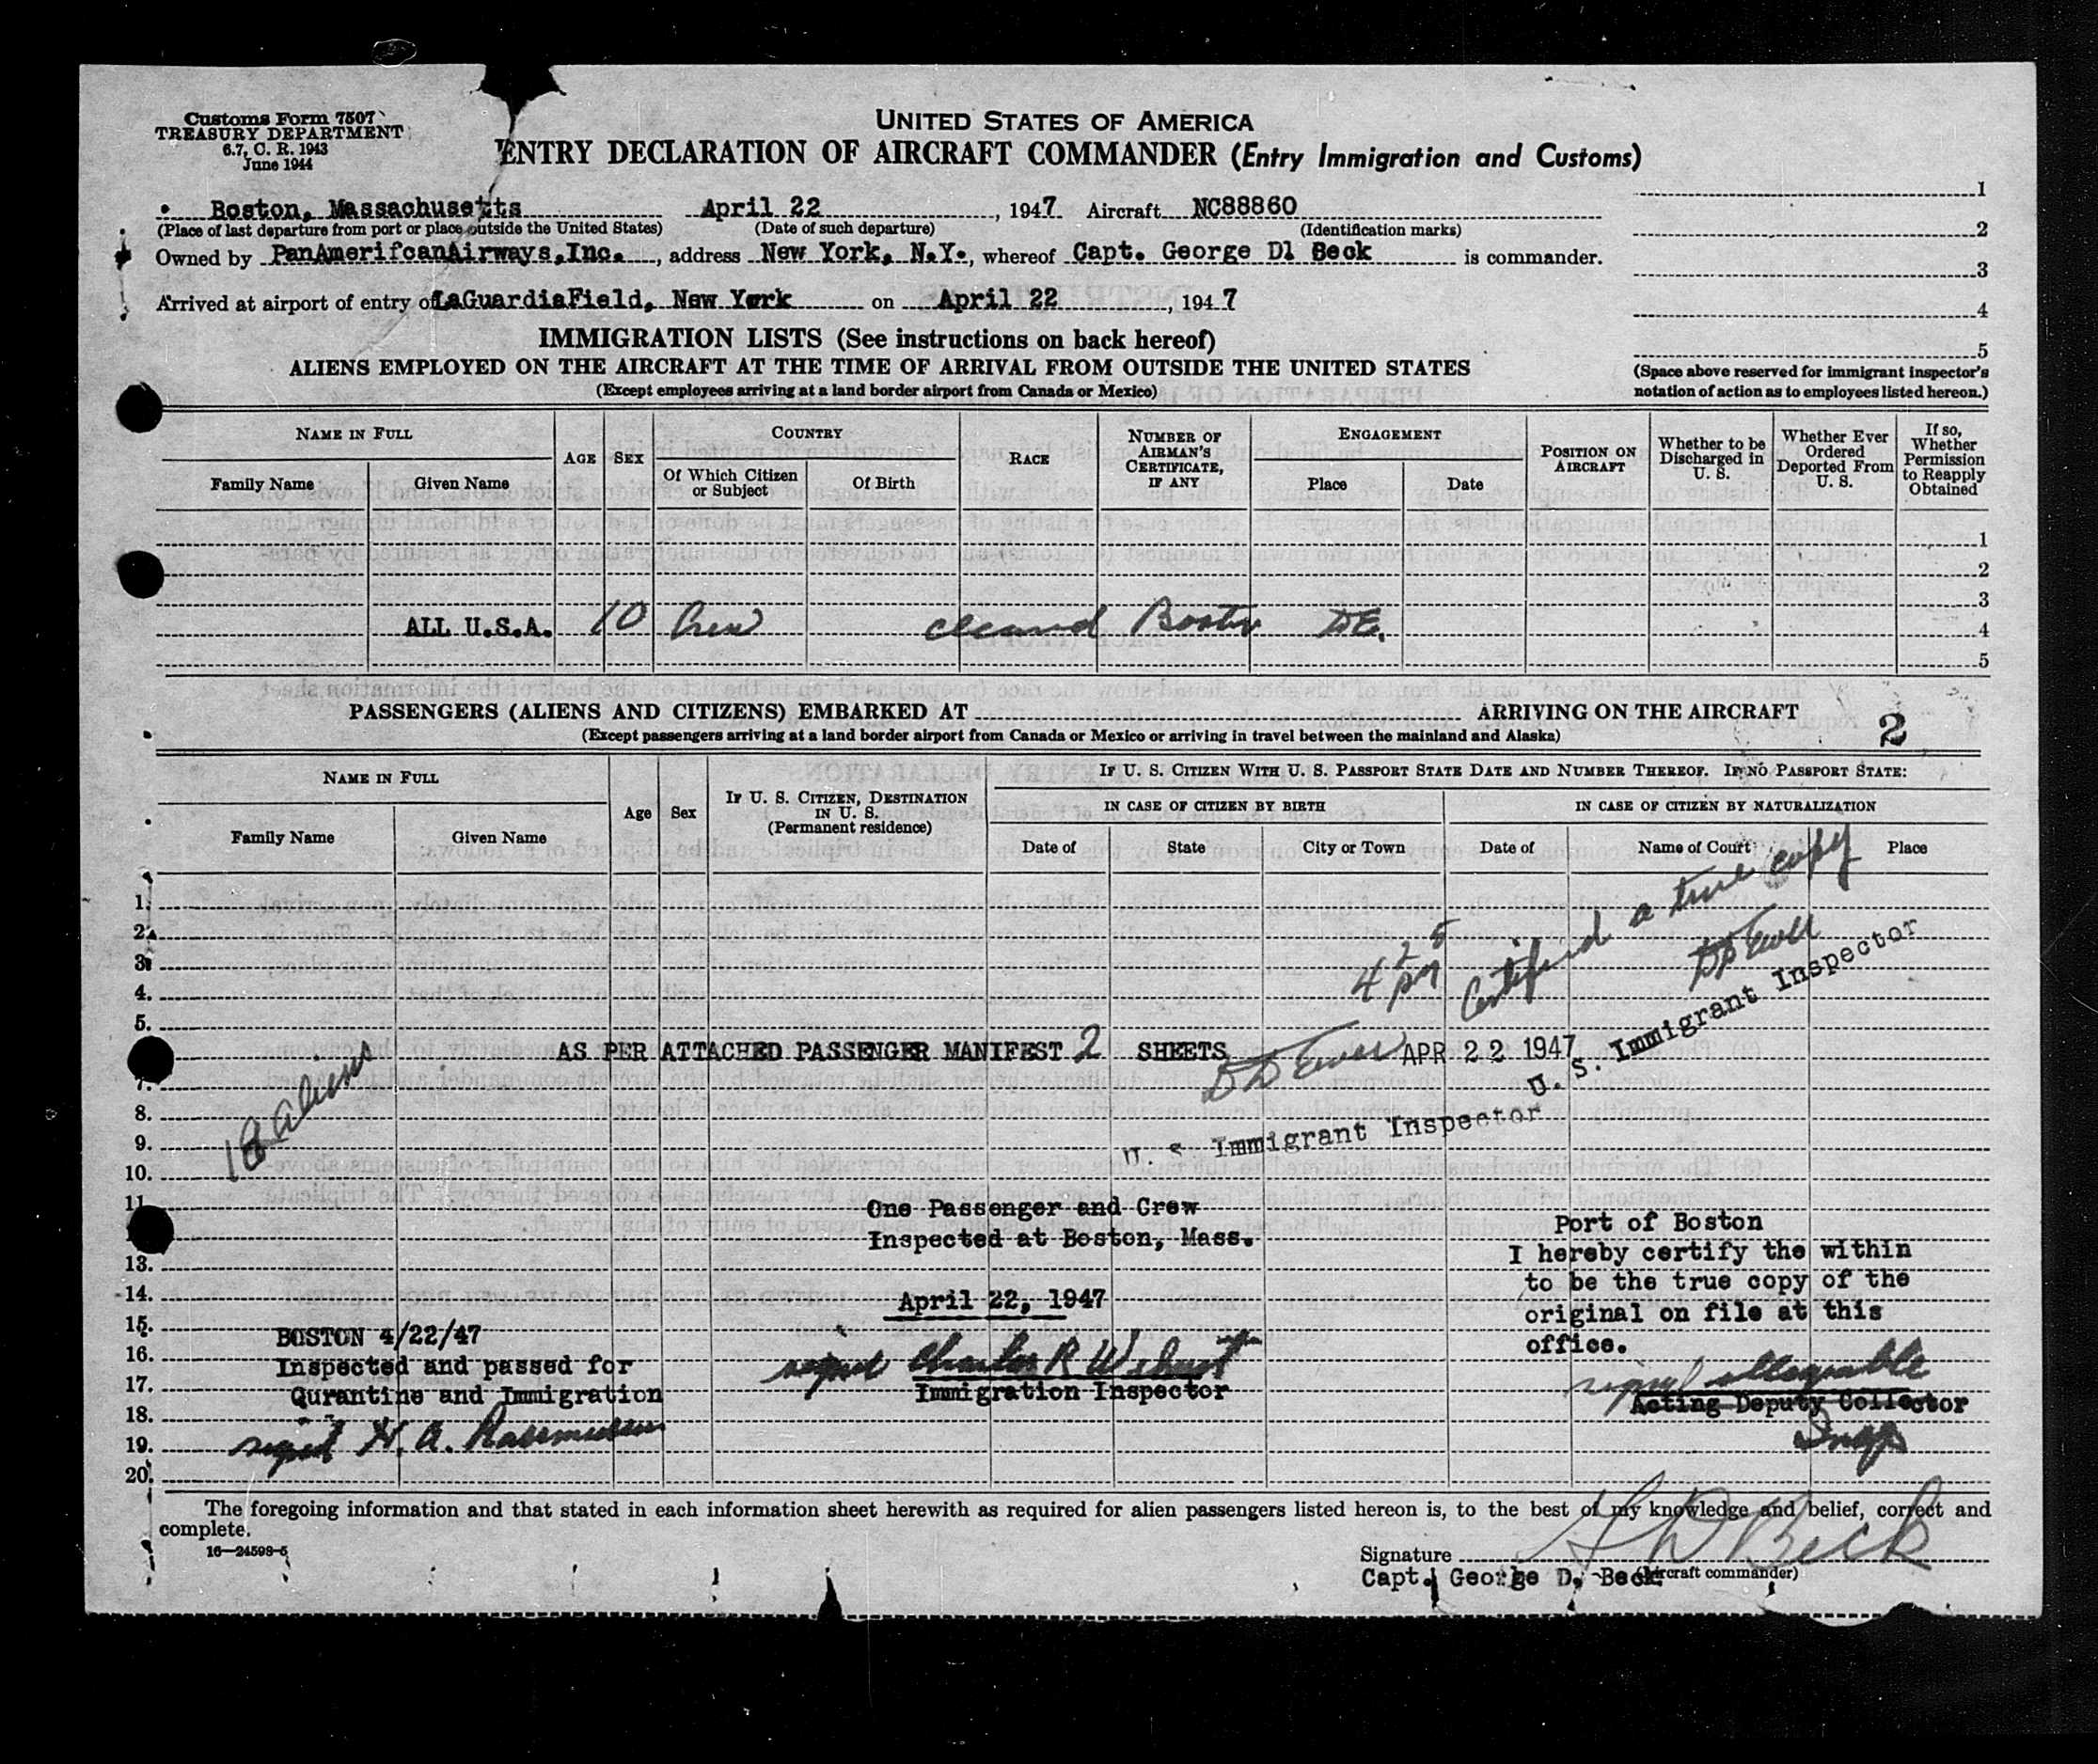 Customs Form 7507
TREASURY DEPARTMENT
6.7, C. R. 1943
June 1944
UNITED STATES OF AMERICA
ENTRY DECLARATION OF AIRCRAFT COMMANDER (Entry Immigration and Customs)
Boston, Massachusetts April 22, 1947 Aircraft NC88860
(Place of last departure from port or place outside the United States) (Date of such departure) (Identification marks)
Owned by PanAmerifcanAirways,Inc., address New York, N.Y., whereof Capt. George Dl Beck is commander.
Arrived at airport of entry of LaGuardiaField, New York on April 22, 1947
1
2
3
4
5
(Space above reserved for immigrant inspector's
notation of action as to employees listed hereon.)
IMMIGRATION LISTS (See instructions on back hereof)
ALIENS EMPLOYED ON THE AIRCRAFT AT THE TIME OF ARRIVAL FROM OUTSIDE THE UNITED STATES
(Except employees arriving at a land border airport from Canada or Mexico)
NAME IN FULL
Family Name
Given Name
AGE
SEX
COUNTRY
Of Which Citizen
or Subject
Of Birth
RACE
NUMBER OF
AIRMAN'S
CERTIFICATE,
IF ANY
ENGAGEMENT
Place
Date
POSITION ON
AIRCRAFT
Whether to be
Discharged in
U. S.
Whether Ever
Ordered
Deported From
U. S.
If so,
Whether
Permission
to Reapply
Obtained
1
2
3
ALL U.S.A. 10 Crew cleared Boston DE. 4
5
PASSENGERS (ALIENS AND CITIZENS) EMBARKED AT ARRIVING ON THE AIRCRAFT
(Except passengers arriving at a land border airport from Canada or Mexico or arriving in travel between the mainland and Alaska)
2
NAME IN FULL
Family Name
Given Name
Age
Sex
IF U. S. CITIZEN, DESTINATION
IN U. S.
(Permanent residence)
IF U. S. CITIZEN WITH U. S. PASSPORT STATE DATE AND NUMBER THEREOF. IF NO PASSPORT STATE:
IN CASE OF CITIZEN BY BIRTH
IN CASE OF CITIZEN BY NATURALIZATION
Date of
State
City or Town
Date of
Name of Court
Place
1.
2.
3.
4.
5.
7.
8.
9.
10.
11.
13.
14.
15.
16.
17.
18.
19.
20.
4 25 pm
Certified a true copy
U. S. Immigrant Inspector
AS PER ATTACHED PASSENGER MANIFEST 2 SHEETS
APR 22 1947
U. S. Immigrant Inspector
18 aliens
One Passenger and Crew
Inspected at Boston, Mass.
April 22, 1947
signed Charles R
Immigration Inspector
BOSTON 4/22/47
Inspected and passed for
Qurantine and Immigration
signed H. A. Rasmussen
Port of Boston
I hereby certify the within
to be the true copy of the
original on file at this
office.
signed
Acting Deputy Collector
The foregoing information and that stated in each information sheet herewith as required for alien passengers listed hereon is, to the best of my knowledge and belief, correct and
complete.
16—24598-5
Signature G D Beck
(Aircraft commander)
Capt. George D. Beck